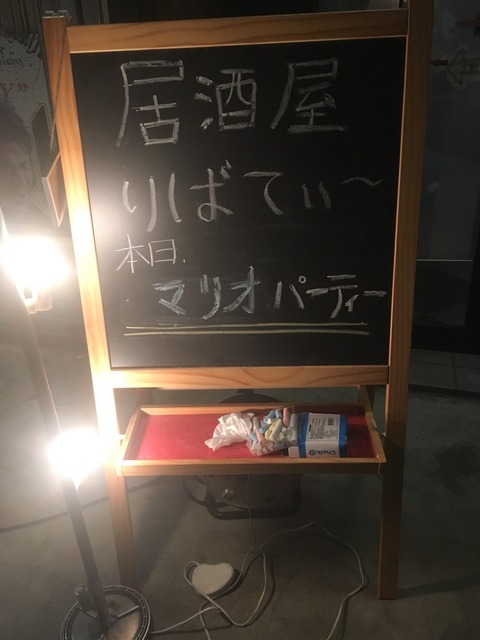 居酒屋
りばてぃ～
本日、
マリオパーティー
Chalk